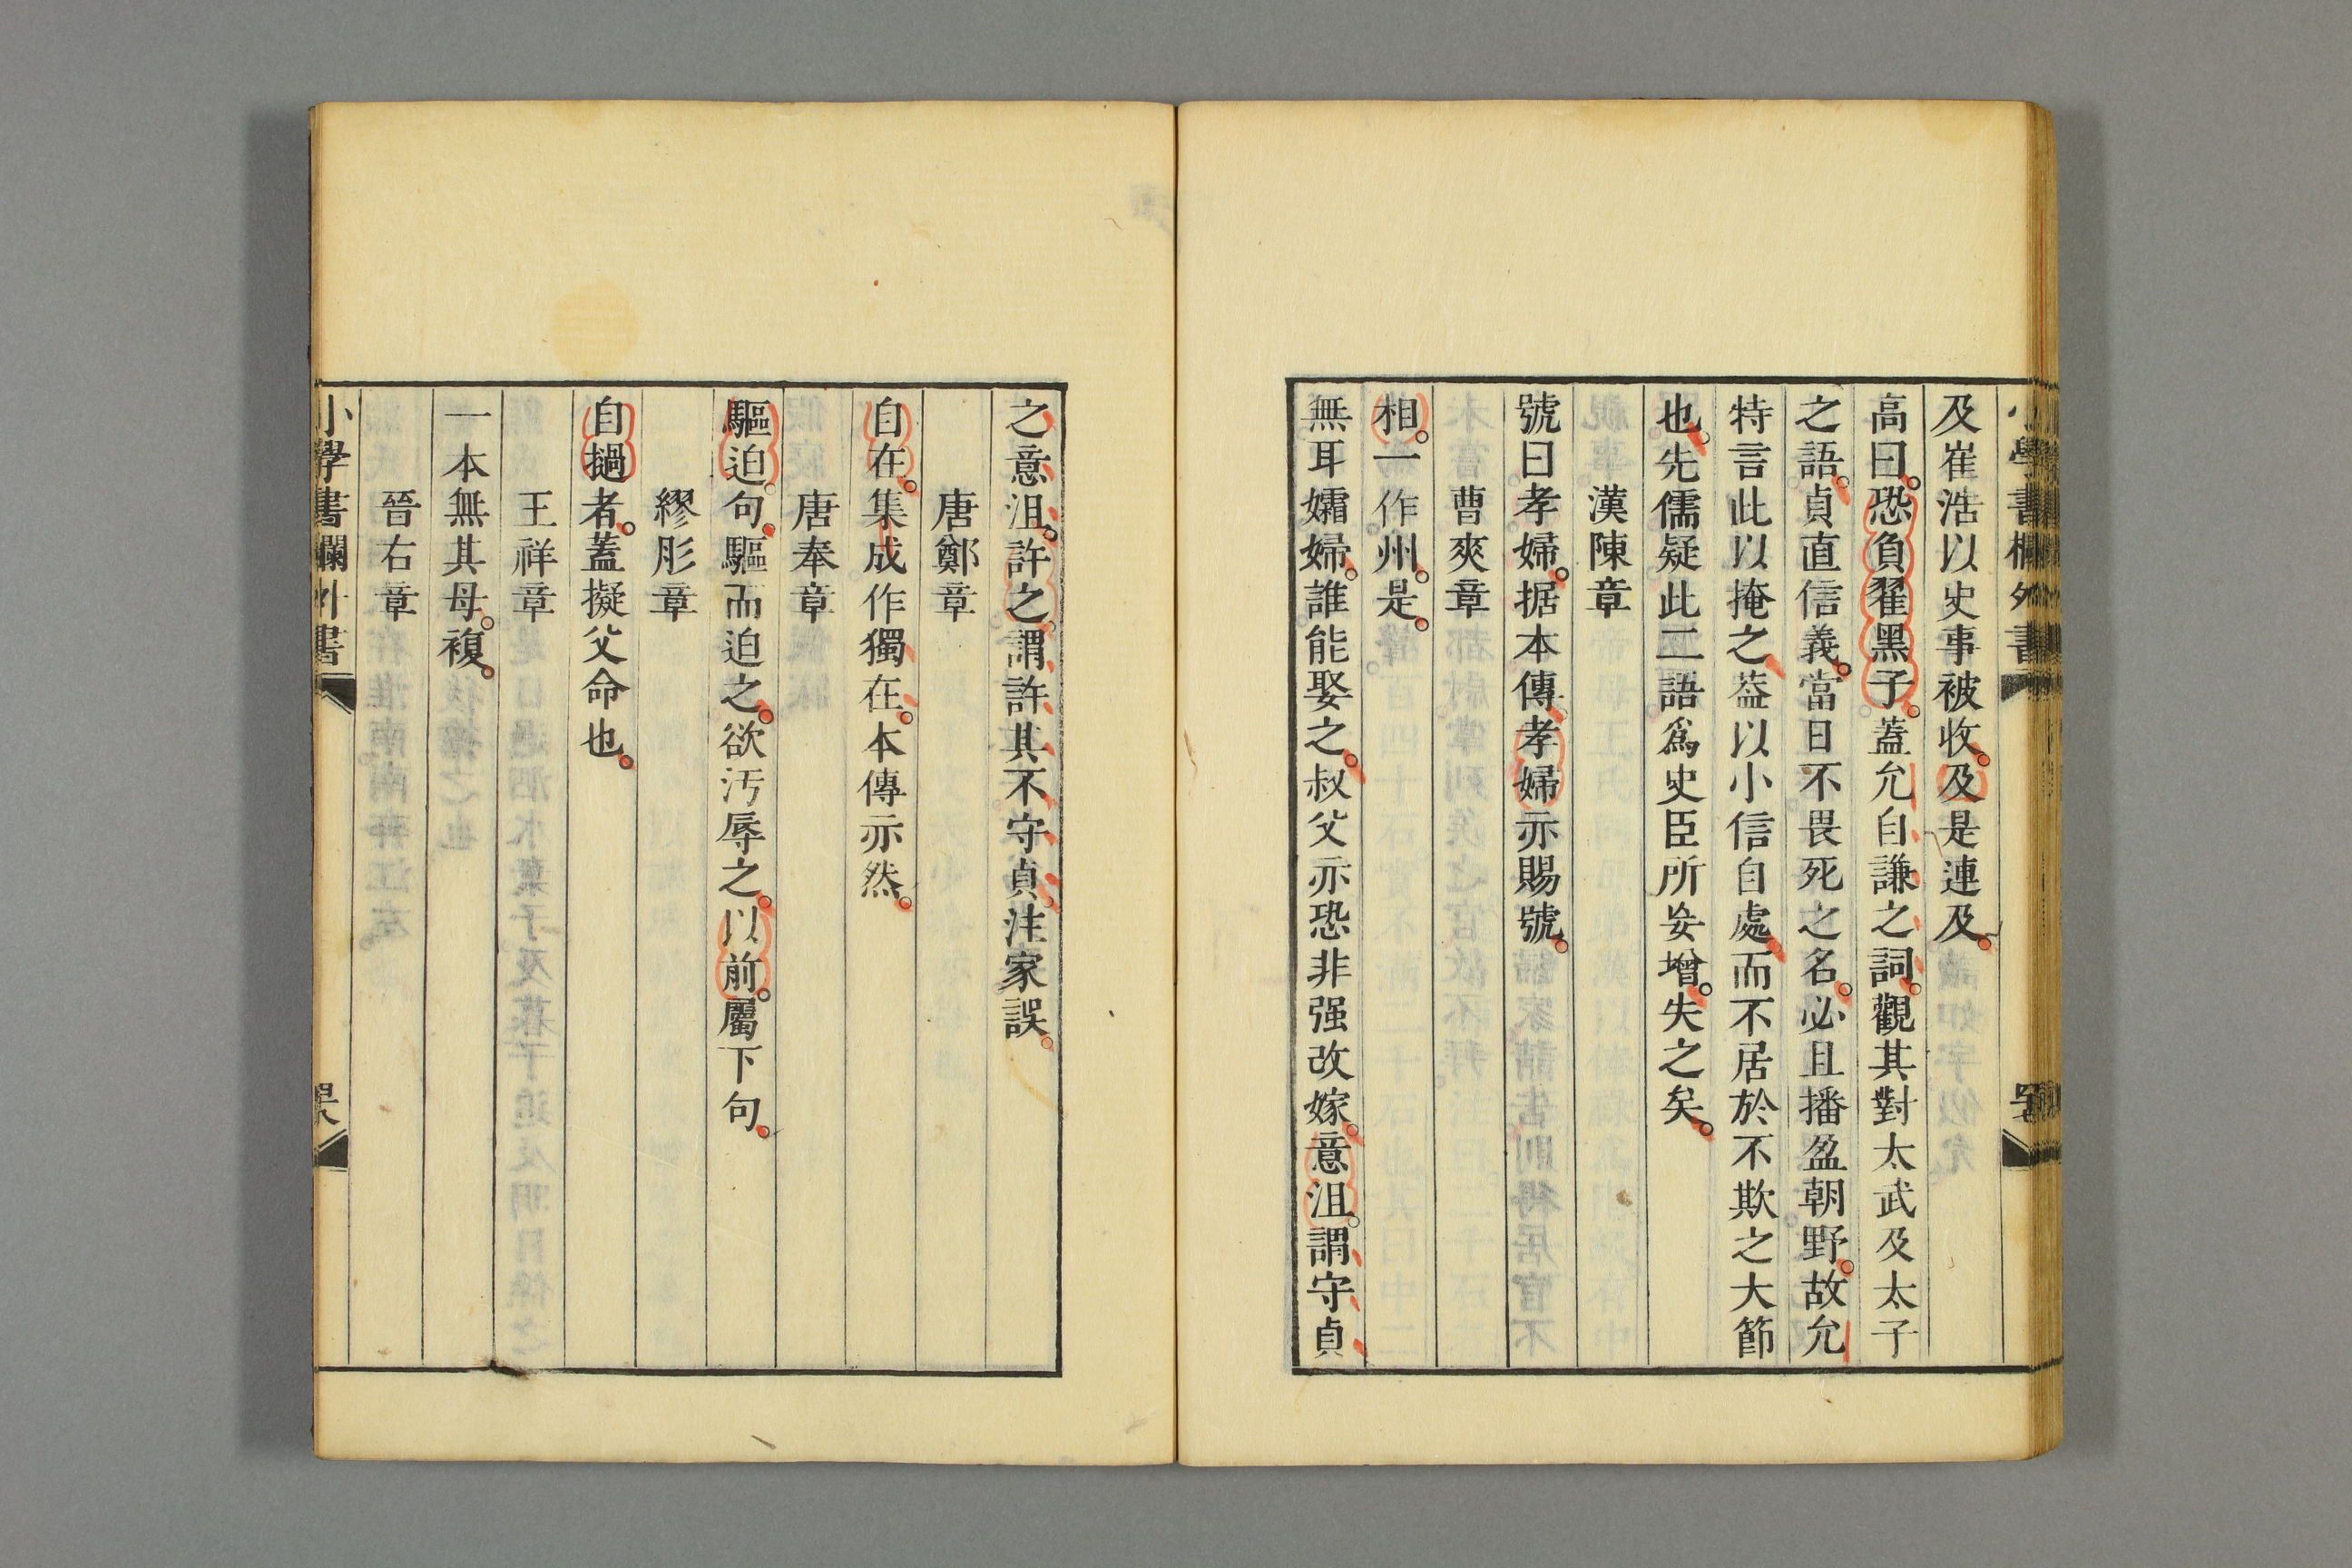 小學書欄外書
及崔浩以史事被收。及是連及。
高曰。恐負翟黑子。蓋允自謙之詞。觀其對太武及太子
之語。貞直信義。當日不畏死之名。必且播盈朝野。故允
特言此以掩之。葢以小信自處。而不居於不欺之大節
也。先儒疑此二語爲史臣所妄增。失之矣。
漢陳章
號曰孝婦。据本傳。孝婦亦賜號。
曹爽章
相。一作州。是。
無耳孀婦。誰能娶之。叔父亦恐非强改嫁。意沮。謂守貞
之意沮。許之。謂許其不守貞。注家誤。
唐鄭章
自在。集成作獨在。本傳亦然。
唐奉章
驅迫。句。驅而迫之。欲汚辱之。以前。屬下句。
繆肜章
自撾者。蓋擬父命也。
王祥章
一本無其母。複。
晉右章
小學書欄外書